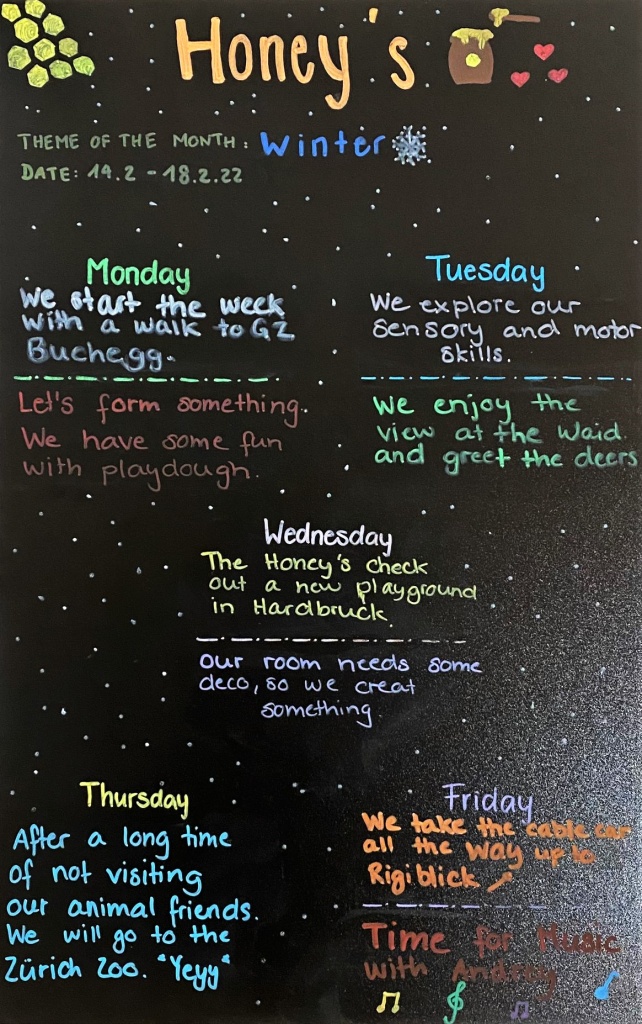 Honey's
THEME OF THE MONTH: Winter
DATE: 14.2 - 18.2.22
Monday
We start the week
with a walk to GZ
Buchegg.
Let's form something.
We have some fun
with playdough.
Tuesday
We explore our
sensory and motor
skills.
We enjoy the
view at the Waid
and greet the deers
Wednesday
The Honey's check
out a new playground
in Hardbruck.
Our room needs some
deco, so we creat
something.
Thursday
After a long time
of not visiting
our animal friends.
We will go to the
Zürich Zoo. "Yeyy"
Friday
We take the cable car
all the way up to
Rigiblick
Time for Music
with Andrey